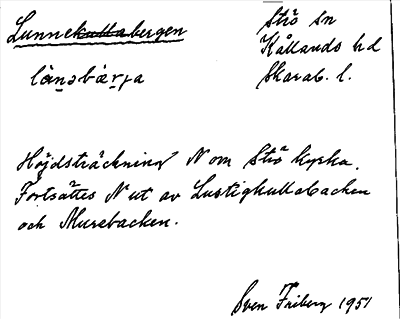 Lunnekullabergen
Strö sn
Kållands hd
Skarab. l.
Höjdsträckning N om Strö kyrka.
Fortsättes N ut av Lustigkullabacken
och Mursbacken.
Sven Friberg 1951